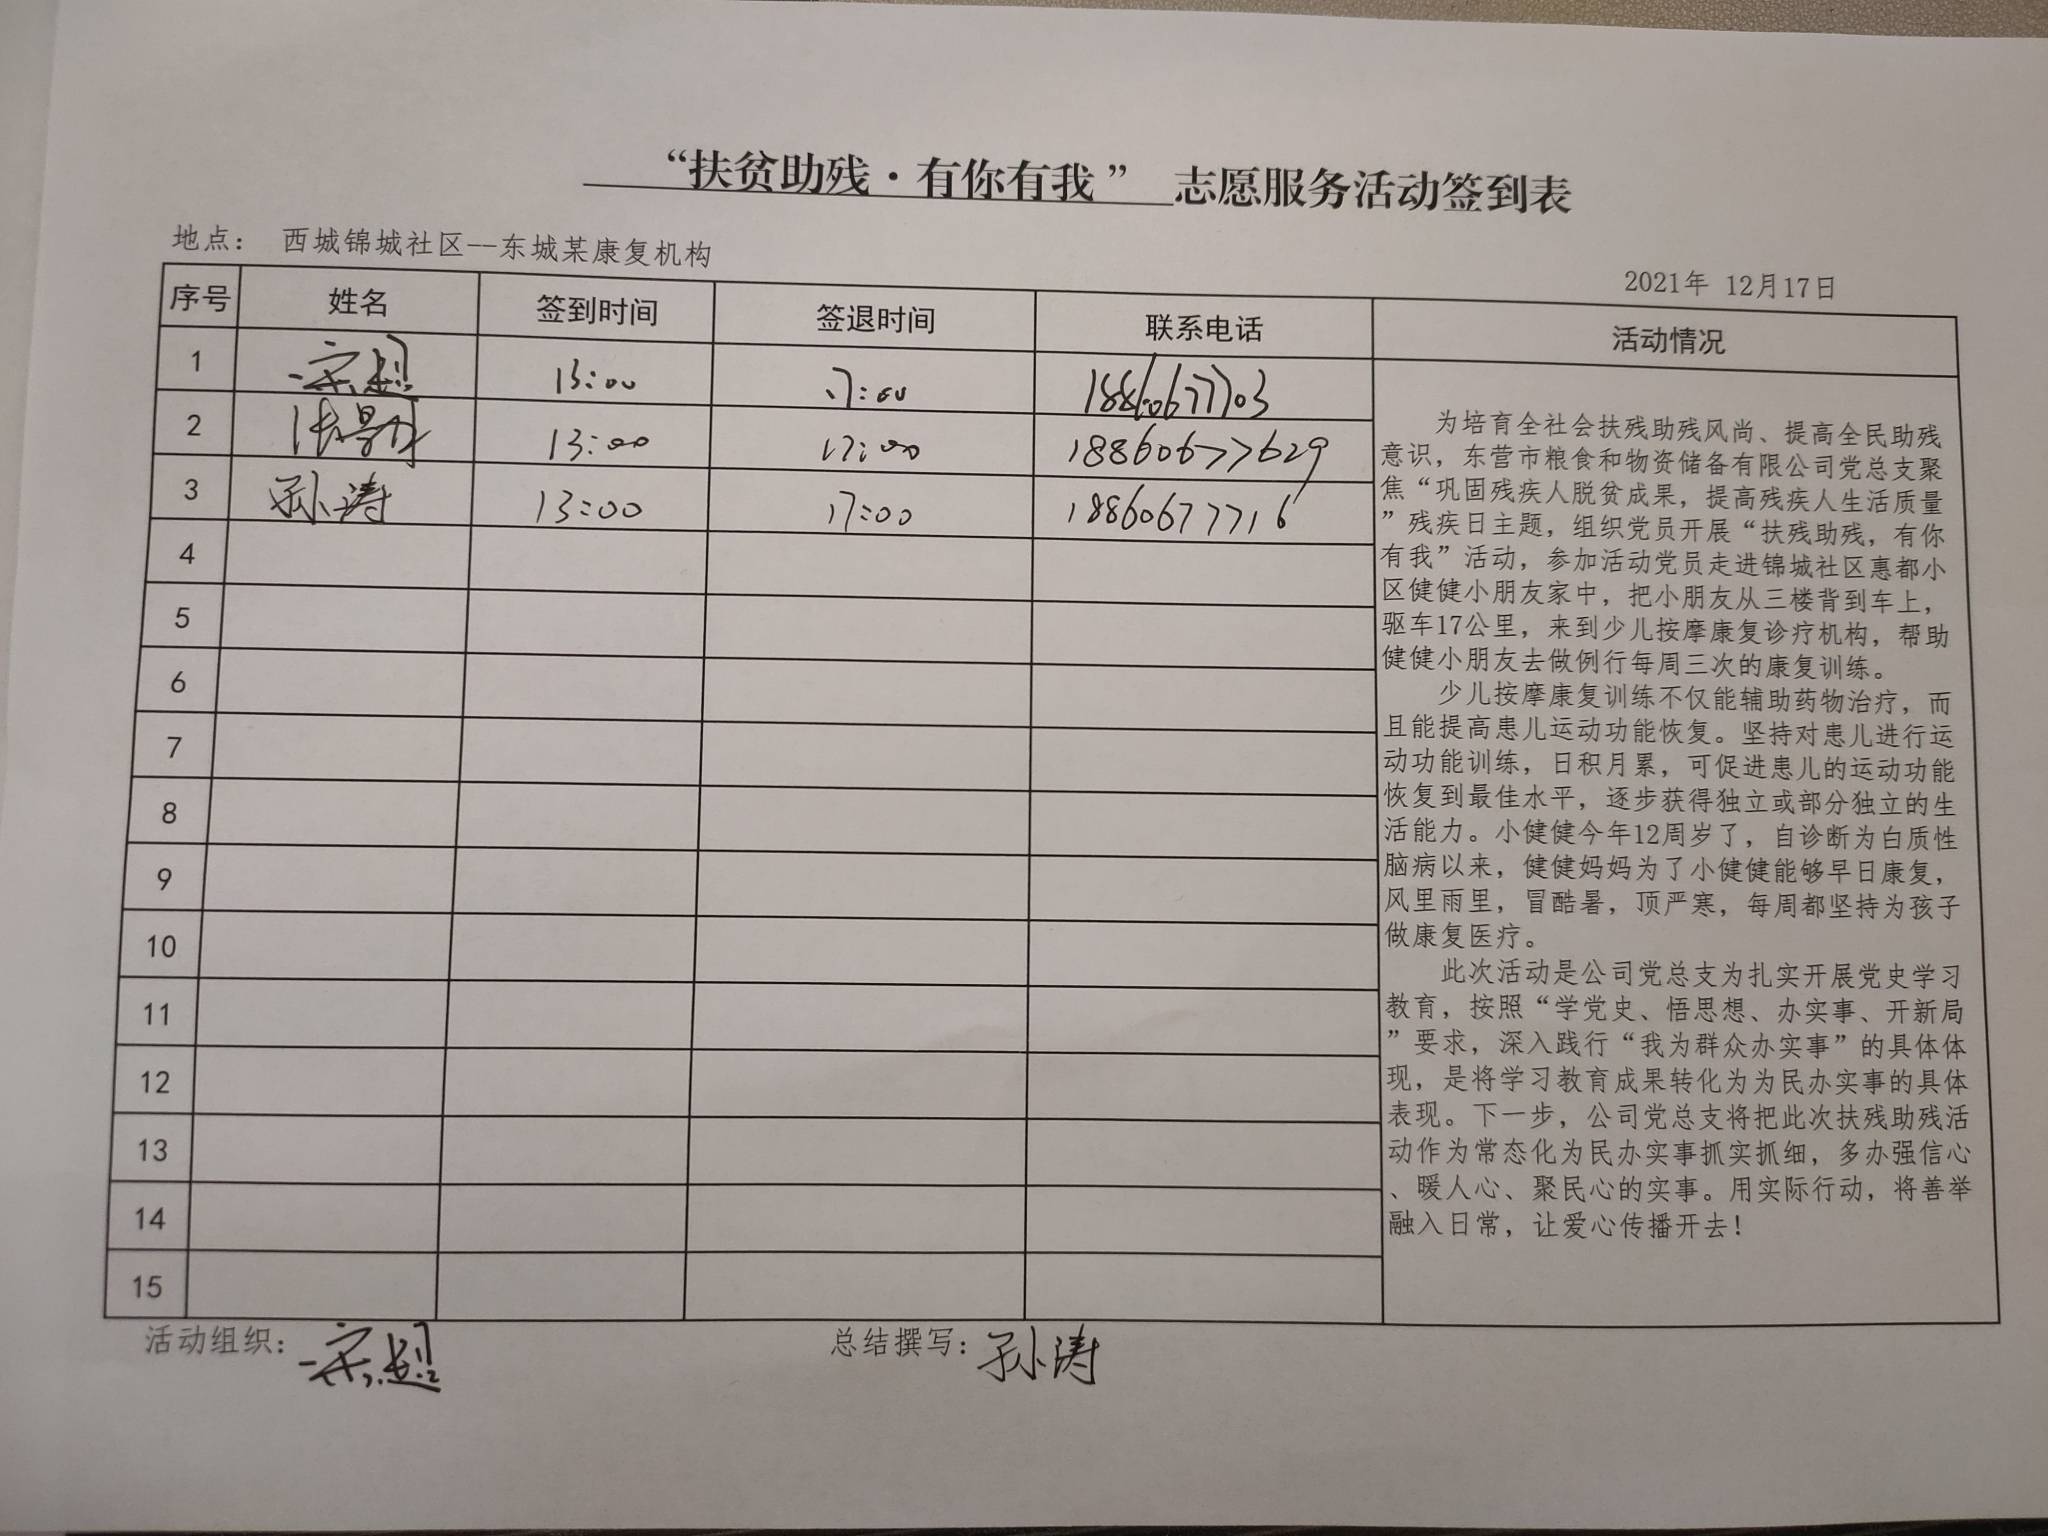 “扶贫助残·有你有我” 志愿服务活动签到表
地点: 西城锦城社区--东城某康复机构
2021年 12月17日
序号 姓名 签到时间 签退时间 联系电话 活动情况
1 宋超 13:00 17:00 18860677703
2 张 13:00 17:00 18860677629
3 孙涛 13:00 17:00 18860677716
4
5
6
7
8
9
10
11
12
13
14
15
为培育全社会扶残助残风尚、提高全民助残
意识，东营市粮食和物资储备有限公司党总支聚
焦“巩固残疾人脱贫成果，提高残疾人生活质量
”残疾日主题，组织党员开展“扶残助残，有你
有我”活动，参加活动党员走进锦城社区惠都小
区健健小朋友家中，把小朋友从三楼背到车上，
驱车17公里，来到少儿按摩康复诊疗机构，帮助
健健小朋友去做例行每周三次的康复训练。
少儿按摩康复训练不仅能辅助药物治疗，而
且能提高患儿运动功能恢复。坚持对患儿进行运
动功能训练，日积月累，可促进患儿的运动功能
恢复到最佳水平，逐步获得独立或部分独立的生
活能力。小健健今年12周岁了，自诊断为白质性
脑病以来，健健妈妈为了小健健能够早日康复，
风里雨里，冒酷暑，顶严寒，每周都坚持为孩子
做康复医疗。
此次活动是公司党总支为扎实开展党史学习
教育，按照“学党史、悟思想、办实事、开新局
”要求，深入践行“我为群众办实事”的具体体
现，是将学习教育成果转化为为民办实事的具体
表现。下一步，公司党总支将把此次扶残助残活
动作为常态化为民办实事抓实抓细，多办强信心
、暖人心、聚民心的实事。用实际行动，将善举
融入日常，让爱心传播开去！
活动组织: 宋超 总结撰写: 孙涛